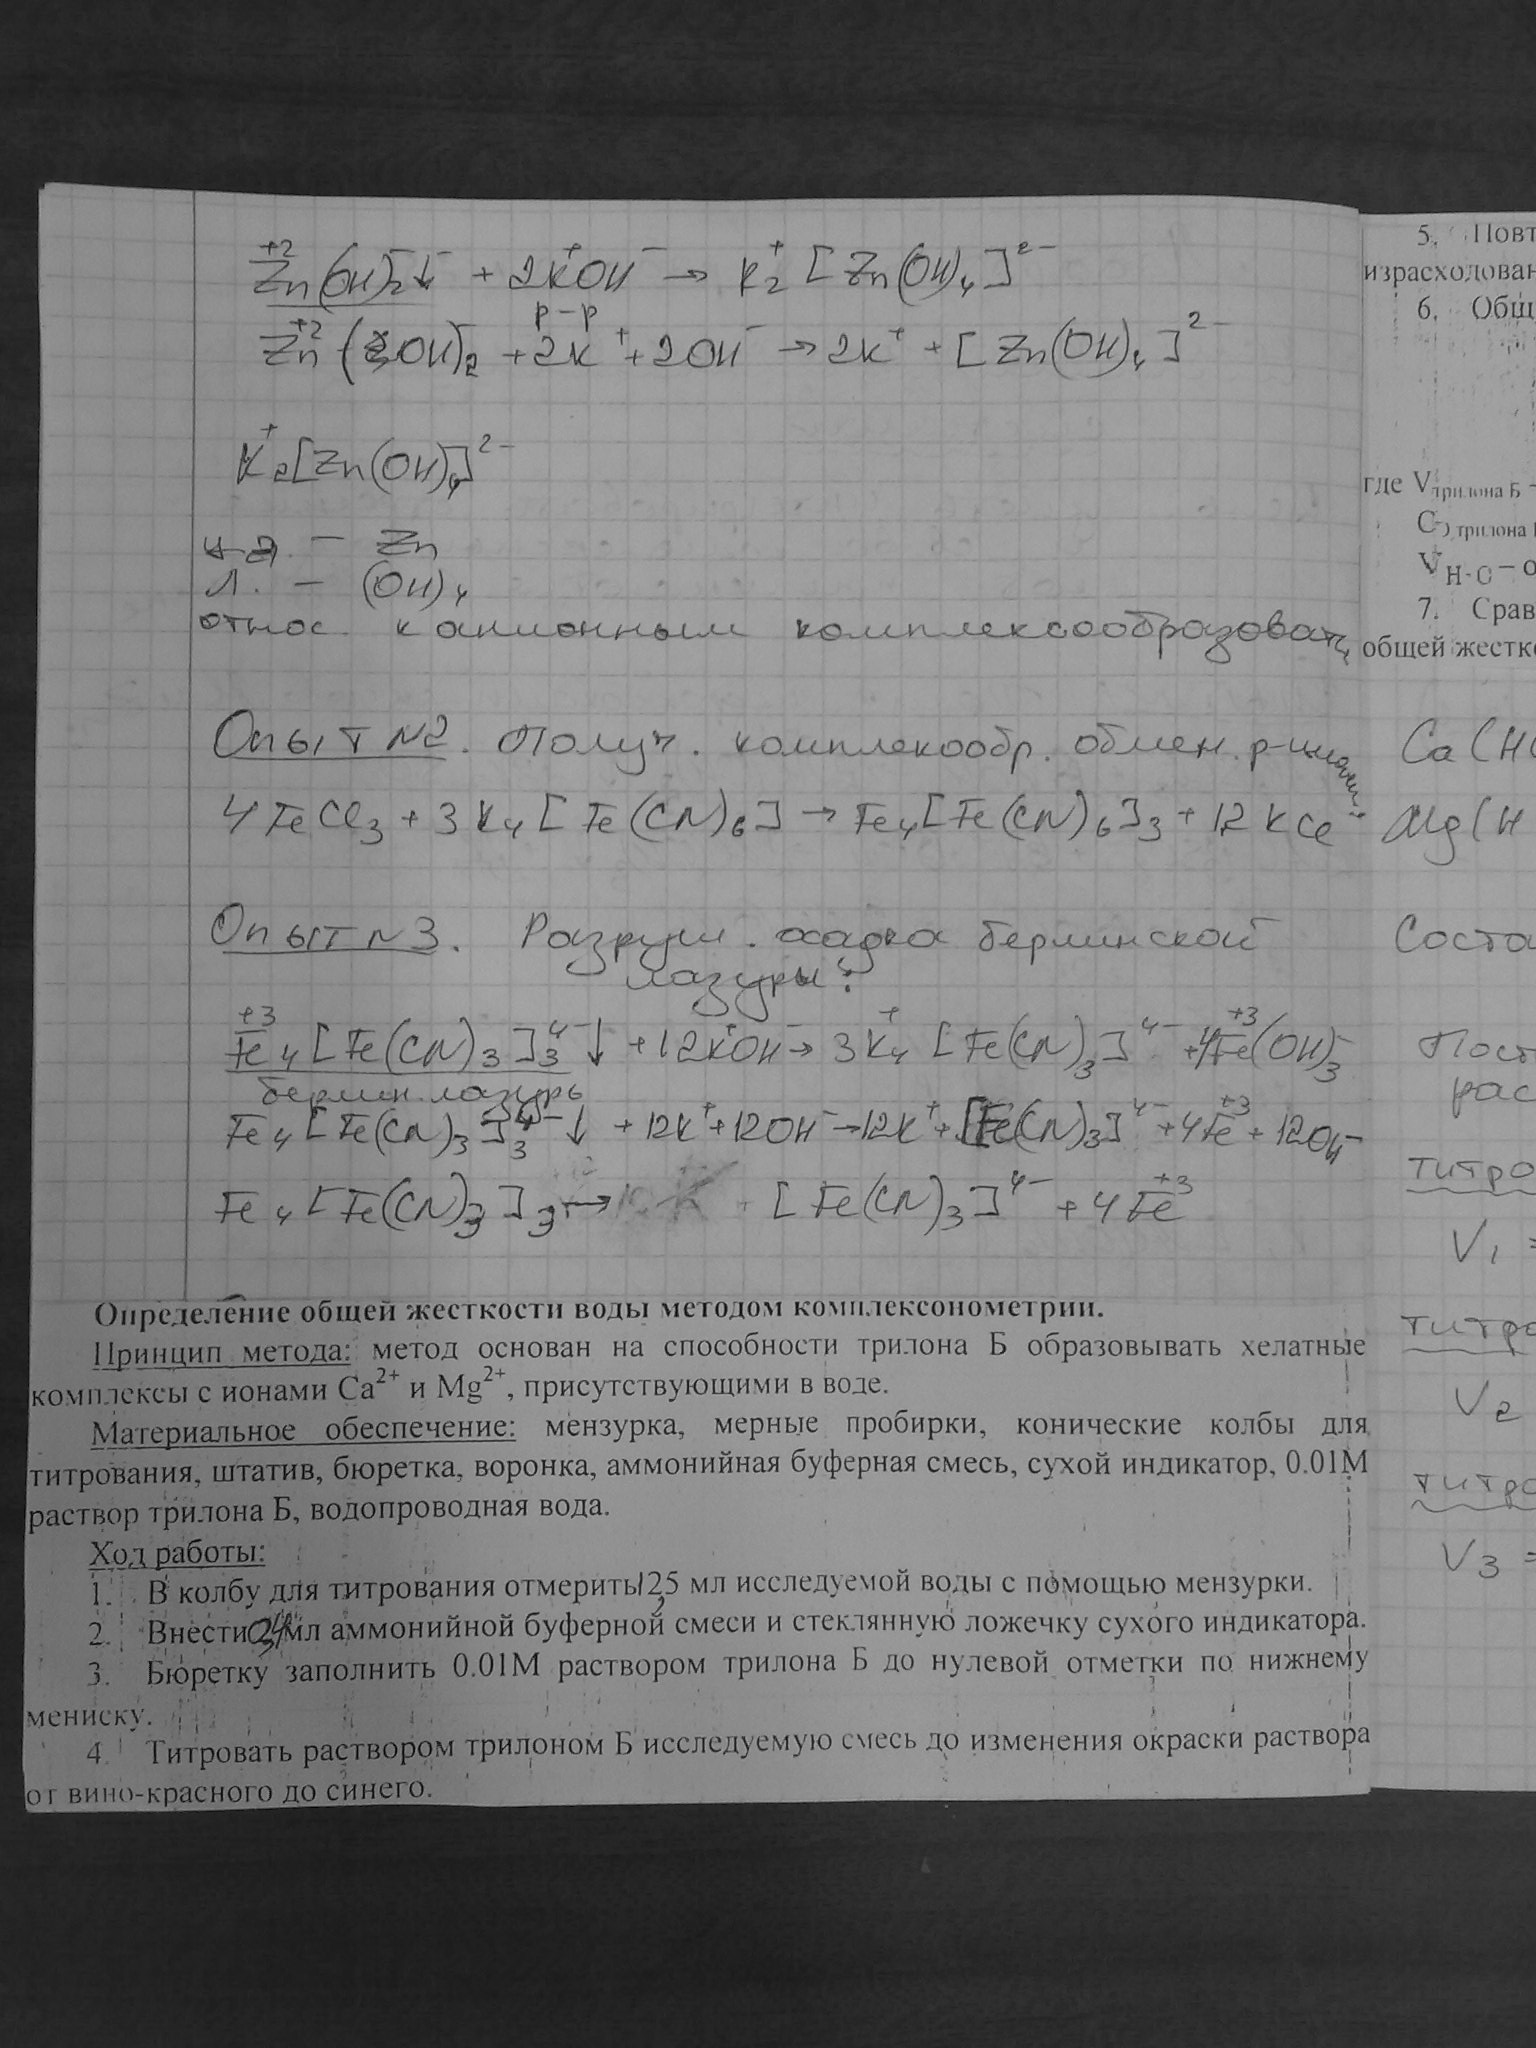 Zn⁺²(OH)₂⁻↓ + 2K⁺OH⁻ → K₂⁺[Zn(OH)₄]²⁻
р-р
Zn⁺²(OH)₂⁻ + 2K⁺ + 2OH⁻ → 2K⁺ + [Zn(OH)₄]²⁻
K⁺₂[Zn(OH)₄]²⁻
- Zn
Л. - (OH)₄
относ. к анионным комплексообразоват.
Опыт N2. Получ. комплексообр. обмен. р-циями:
4FeCl₃ + 3K₄[Fe(CN)₆] → Fe₄[Fe(CN)₆]₃ + 12KCl
Опыт N3. Разруш. осадка берлинской
лазури:
Fe⁺³₄[Fe(CN)₃]₃⁴⁻↓ + 12K⁺OH⁻ → 3K₄⁺[Fe(CN)₃]⁴⁻ + 4Fe⁺³(OH)₃⁻
берлин. лазурь
Fe₄[Fe(CN)₃]₃⁴⁻↓ + 12K⁺ + 12OH⁻ → 12K⁺ + [Fe(CN)₃]⁴⁻ + 4Fe⁺³ + 12OH⁻
Fe₄[Fe(CN)₃]₃ → + [Fe(CN)₃]⁴⁻ + 4Fe⁺³
Определение общей жесткости воды методом комплексонометрии.
Принцип метода: метод основан на способности трилона Б образовывать хелатные
комплексы с ионами Ca²⁺ и Mg²⁺, присутствующими в воде.
Материальное обеспечение: мензурка, мерные пробирки, конические колбы для
титрования, штатив, бюретка, воронка, аммонийная буферная смесь, сухой индикатор, 0.01М
раствор трилона Б, водопроводная вода.
Ход работы:
1. В колбу для титрования отмерить 12,5 мл исследуемой воды с помощью мензурки.
2. Внести мл аммонийной буферной смеси и стеклянную ложечку сухого индикатора.
3. Бюретку заполнить 0.01М раствором трилона Б до нулевой отметки по нижнему
мениску.
4. Титровать раствором трилоном Б исследуемую смесь до изменения окраски раствора
от вино-красного до синего.
5. Повт
израсходован
6. Общ
где Vтрилона Б –
Cэ трилона
V H₂O – о
7. Срав
общей жестко
Ca(H
Mg(H
Соста
Пост
рас
титро
V₁ =
титро
V₂
титро
V₃ =